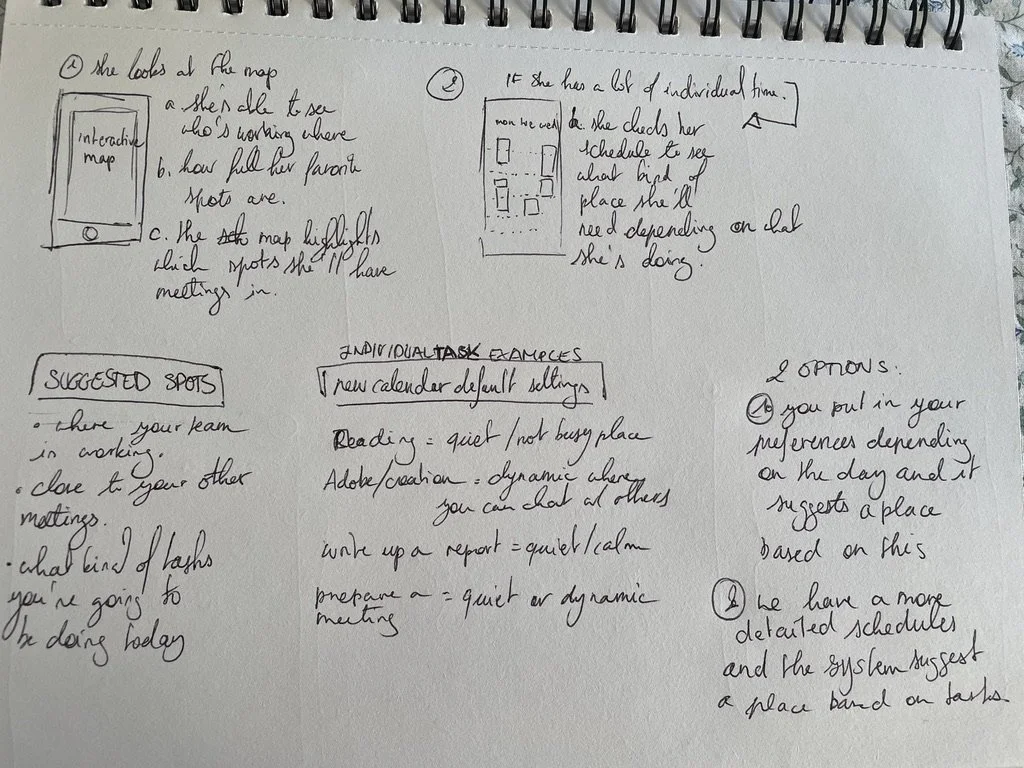 1 she looks at the map
interactive
map
a. she's able to see
who's working where
b. how full her favorite
spots are.
c. the map highlights
which spots she'll have
meetings in.
2 IF she has a lot of individual time.
mon we wed
b. she checks her
schedule to see
what kind of
place she'll
need depending on what
she's doing.
SUGGESTED SPOTS
• where your team
is working.
• close to your other
meetings.
• what kind of tasks
you're going to
be doing today
INDIVIDUAL TASK EXAMPLES
new calendar default settings
Reading = quiet / not busy place
Adobe/creation = dynamic where
you can chat w/ others
write up a report = quiet/calm
prepare a = quiet or dynamic
meeting
2 OPTIONS:
1 you put in your
preferences depending
on the day and it
suggests a place
based on this
2 we have a more
detailed schedules
and the system suggest
a place based on tasks.